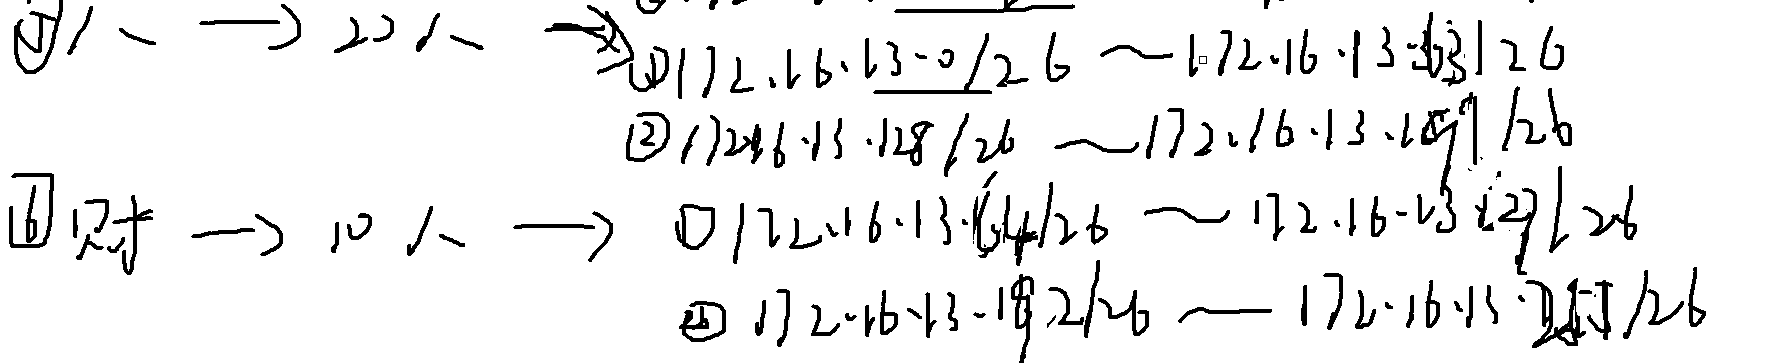 ⑤人 → 20人 → ①172.16.13.0/26 ~ 172.16.13.63/26
②172.16.13.128/26 ~ 172.16.13.191/26
6财 → 10人 → ①172.16.13.64/26 ~ 172.16.13.127/26
②172.16.13.192/26 ~ 172.16.13.255/26